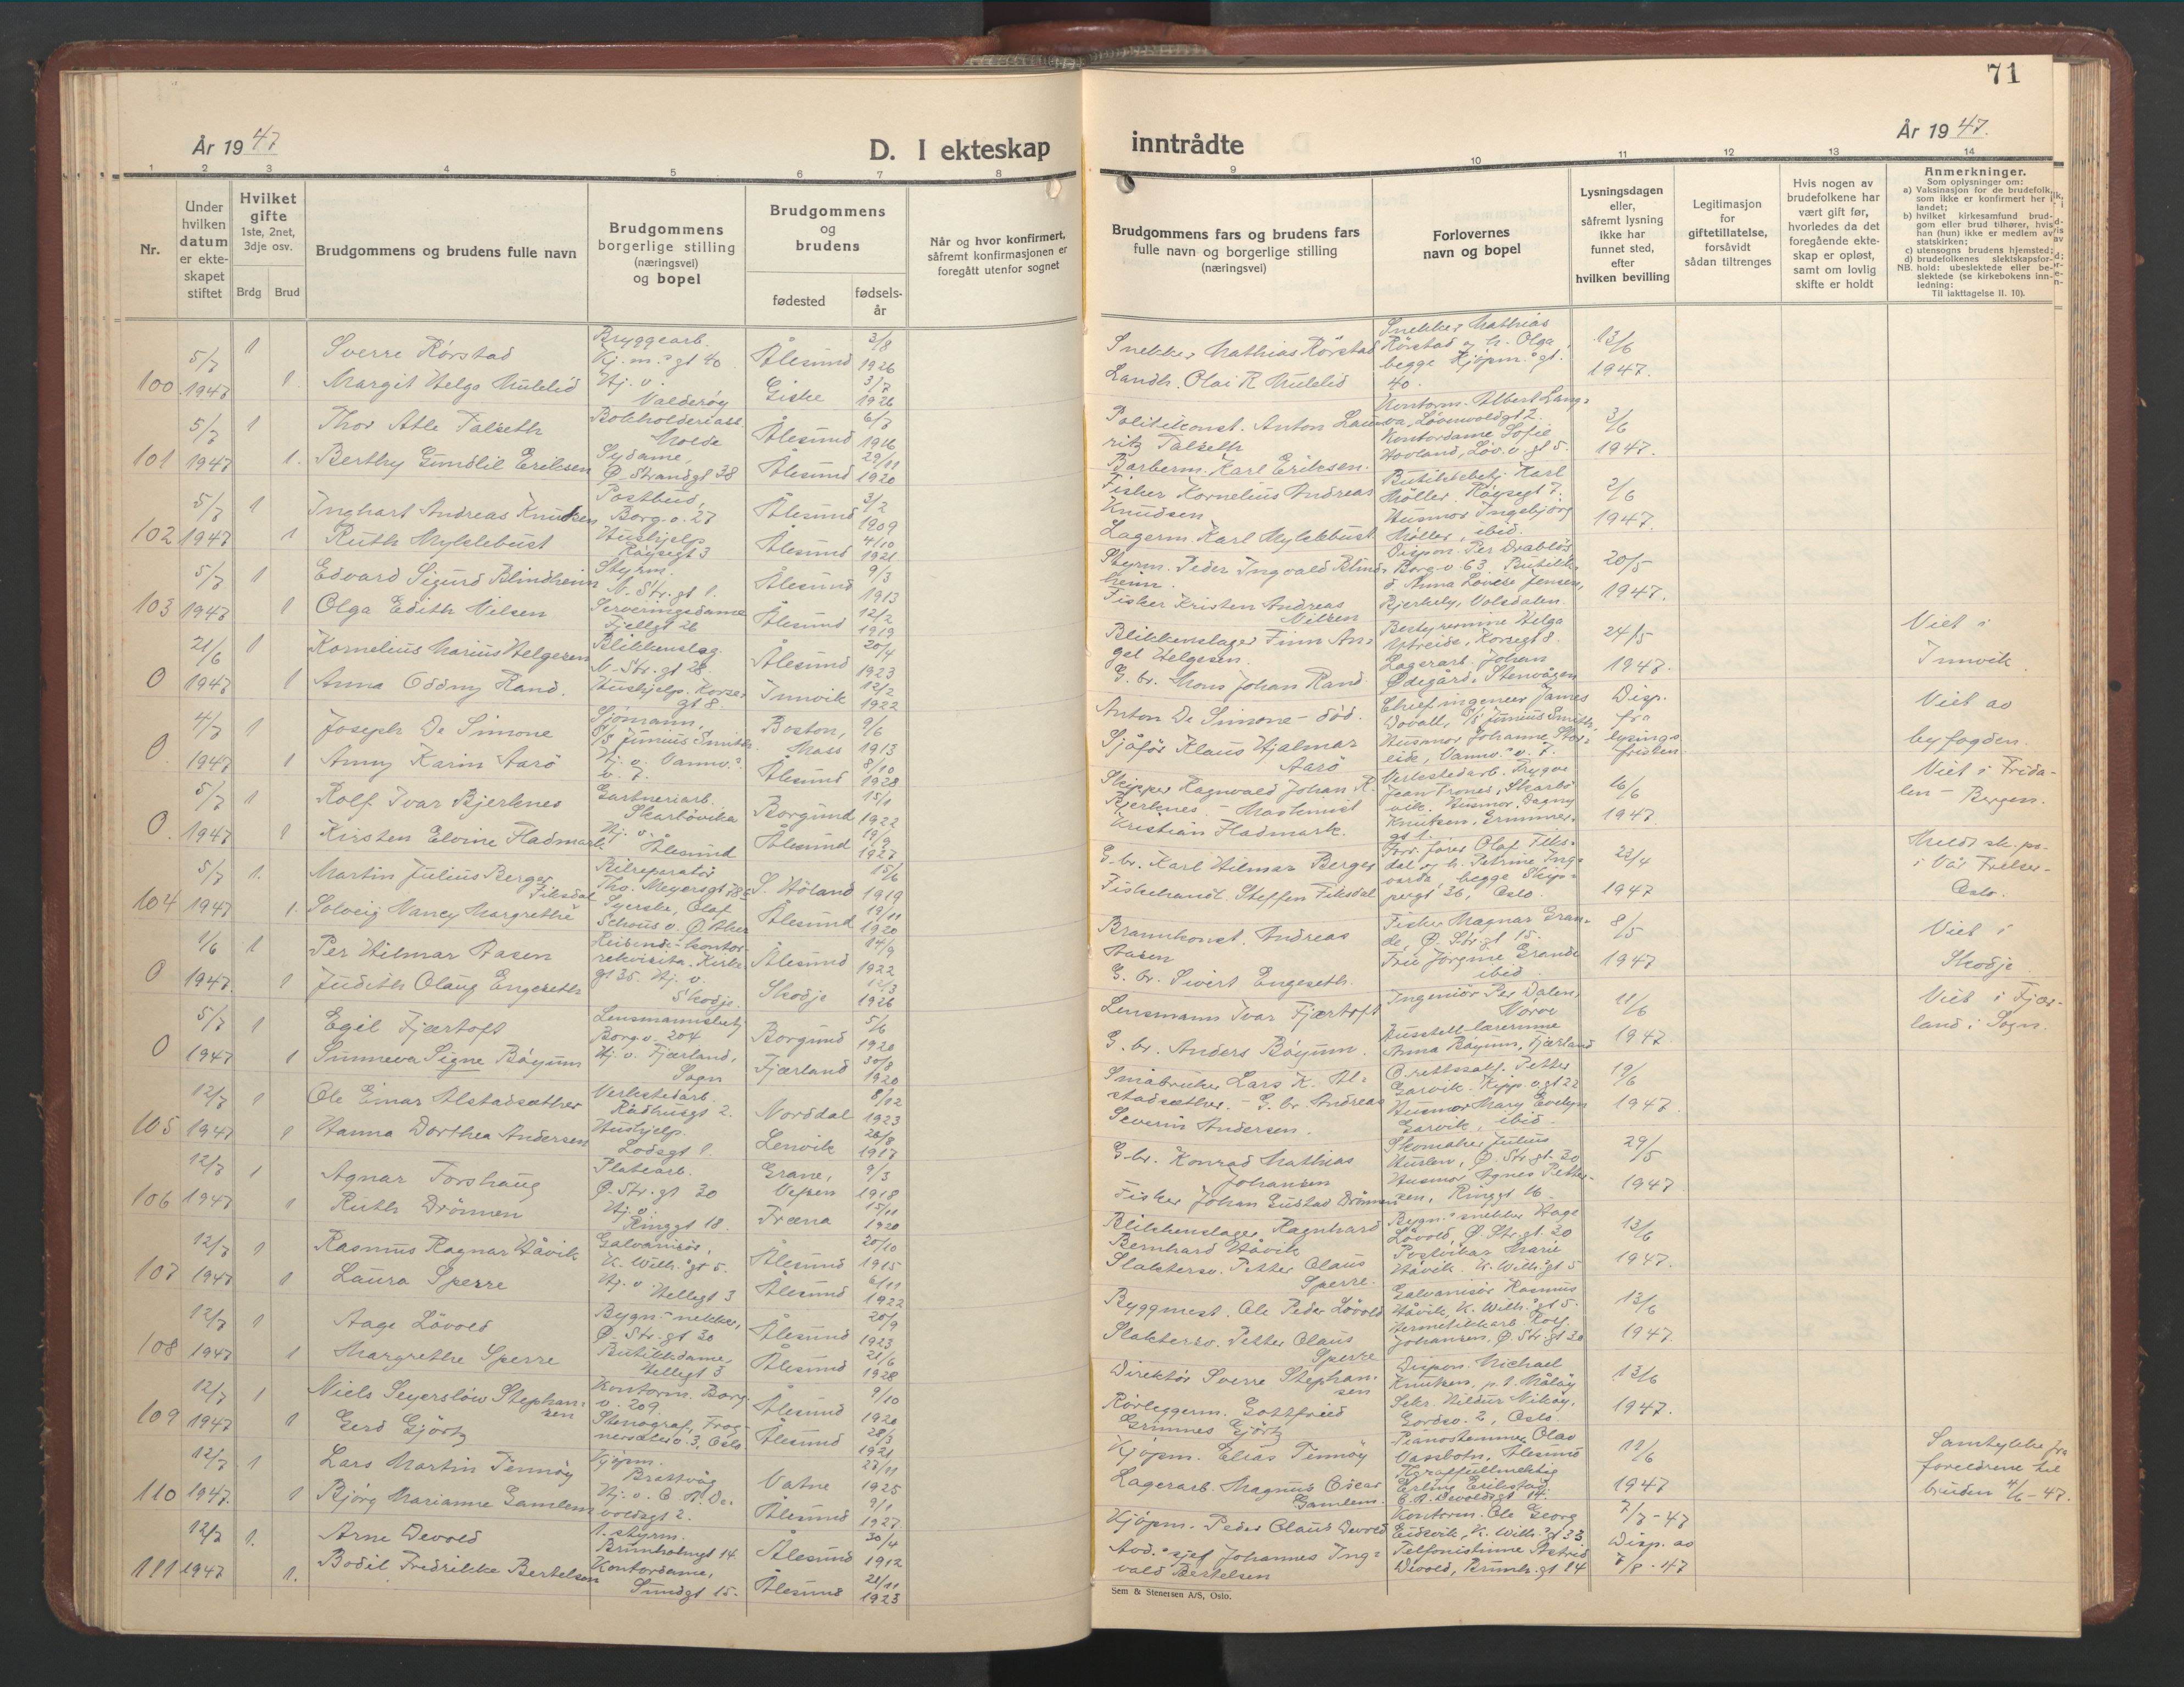 71
År 1947
D. I ekteskap inntrådte
År 1947.
1 2 3 4 5 6 7 8 9 10 11 12 13 14
Nr.
Under hvilken datum er ekteskapet stiftet
Hvilket gifte 1ste, 2net, 3dje osv.
Brdg Brud
Brudgommens og brudens fulle navn
Brudgommens borgerlige stilling (næringsvei) og bopel
Brudgommens og brudens
fødested
fødselsår
Når og hvor konfirmert, såfremt konfirmasjonen er foregått utenfor sognet
Brudgommens fars og brudens fars fulle navn og borgerlige stilling (næringsvei)
Forlovernes navn og bopel
Lysningsdagen eller, såfremt lysning ikke har funnet sted, efter hvilken bevilling
Legitimasjon for giftetillatelse, forsåvidt sådan tiltrenges
Hvis nogen av brudefolkene har vært gift før, hvorledes da det foregående ekteskap er opløst, samt om lovlig skifte er holdt
Anmerkninger.
Som oplysninger om:
a) Vaksinasjon for de brudefolk, som ikke er konfirmert her i landet;
b) hvilket kirkesamfund brudgom eller brud tilhører, hvis han (hun) ikke er medlem av statskirken;
c) utensogns brudens hjemsted;
d) brudefolkenes slektskapsforhold: ubeslektede eller beslektede (se kirkebokens innledning:
NB.
Til iakttagelse II. 10).
100 5/7 1947 1 Sverre Rörstad Bryggearb. Kj.m.s gt 40 Ålesund 3/8 1926 Snekker Mathias Rörstad Snekker Mathias Rörstad og h. Olga, begge Kjöpm.s gt. 40. 13/6 1947.
1. Margit Helga Mulelid Hj. v. Valderöy Giske 3/7 1926 Landh. Olai R Mulelid
101 5/7 1947 1 Thor Atle Talseth Bokholderiass. Molde Ålesund 6/7 1916 Politikonst. Anton Lauritz Talseth Kontorm. Albert Langva, Lövenvoldgt 2. Kontordame Sofie Hovland, Löv.v.gt 5. 3/6 1947.
1. Berthy Gundlil Eriksen Sydame, Ø. Strandgt 38 Ålesund 29/11 1920 Barberm. Karl Eriksen.
102 5/7 1947 1 Inghart Andreas Knudsen Postbud, Borg.v. 27 Ålesund 3/2 1909 Fisker Kornelius Andreas Knudsen Butikkbetj. Karl Möller, Röysegt 7. Husmor Ingebjörg Möller, ibid. 2/6 1947.
1 Ruth Myklebust Hushjelp Röysegt 3 Ålesund 4/10 1921. Lagerm. Karl Myklebust
103 5/7 1947 1 Edvard Sigurd Blindheim Styrm. N. Str. gt 1. Ålesund 9/3 1913 Styrm. Peder Ingvald Blindheim. Dispon. Per Drablös Borg.v 63. Butikkd. Anna Lovise Jensen, Bjerkely, Volsdalen. 20/5 1947.
1 Olga Edith Nilsen Serveringsdame Fjellgt 26 Ålesund 12/2 1919 Fisker Kristen Andreas Nilsen
0 21/6 1947 1 Kornelius Marius Helgesen Blikkenslag. N. Str. gt 28 Ålesund 20/4 1923 Blikkenslager Finn Angel Helgesen. Bestyrerinne Helga Ytreide, Korsegt 8. Lagerarb. Johan Ødegård, Stenvågen 24/5 1947. Viet i Innvik.
1 Anna Oddny Rand. Hushjelp. Korsegt 8. Innvik 12/2 1922 G.br. Mons Johan Rand
0. 4/7 1947 1 Joseph De Simone Sjömann, S/S Junius Smith. Boston, Mass 9/6 1913 Anton De Simone - död. Chief ingeneer James Dovall, S/S Junius Smith. Husmor Johanne Skoreide, Vannv.s v. 7. Disp. fra lysingsfristen Viet av byfogden.
1 Anny Karin Aarö Hj. v. Vannv.s v. 7. Ålesund 8/10 1928 Sjåför Klaus Hjalmar Aarö
0. 5/7 1947 1 Rolf Ivar Bjerknes Gartneriarb. Skarbövika Borgund 15/1 1922 Skipper Ragnvald Johan R. Bjerknes - Maskinist Verkstedarb. Trygve Jean Trones, Skarbövik. Husmor Dagny Knutsen, Grimmergt 1. 16/6 1947. Viet i Fridalen - Bergen.
1 Kirsten Elvine Fladmark Hj. v. Ålesund Ålesund 19/9 1927 Kristian Fladmark.
104 5/7 1947 1. Martin Julius Berger Bilreparatör Ths. Meyersgt 78c S. Höland 15/6 1919 G.br. Karl Hilmar Berger Forr. förer Olaf Fiksdal og h. Petrine Ingvarda, begge Skippergt 36, Oslo. 23/4 1947 Meldt sk. po. i Vår Frelser Oslo.
1. Solveig Nancy Margrethe Fiksdal Syerske, Olaf Schous v. Ø. Aker Ålesund 19/11 1920 Fiskehandl. Steffen Fiksdal
0 1/6 1947. 1 Per Hilmar Aasen Reisende - kontorrekvisita. Kirkegt 35. Ålesund 14/9 1922 Brannkonst. Andreas Aasen Fisker Magnar Grande, Ø. Str. gt 15. Fru Jörgine Grande ibid 8/5 1947 Viet i Skodje.
1 Judith Olaug Engeseth Hj. v. Skodje. Skodje 12/3 1926 G.br. Sivert Engeseth.
0 5/7 1947 1 Egil Fjærtoft Lensmannsbetj Borg.v. 204 Borgund 5/6 1920 Lensmann Ivar Fjærtoft Ingeniör Per Dalen, Vorve 11/6 1947. Viet i Fjærland i Sogn.
1 Sunneva Signe Böyum Hj. v. Fjærland, Sogn Fjærland 30/8 1920 G.br. Anders Böyum. Husstell-lærerinne Anna Böyum, Fjærland
105 12/7 1947 1 Ole Einar Alstadsæther Verkstedarb. Rådhusgt 2. Norddal 8/12 1923 Småbruker Lars K. Alstadsæther. - G.br. Andreas O.rettssakf. Petter Garvik, Kipp.v.gt 22 Husmor Mary Evelyn Garvik, ibid. 19/6 1947.
1 Hanna Dorthea Andersen Hushjelp. Lodsgt 1. Lenvik 26/8 1917 Severin Andersen.
106 12/7 1947 1 Agnar Forshaug Platearb. Ø. Str. gt 30 Grane, Vefsen 9/3 1918 G.br. Konrad Mathias Johansen Skomaker Julius Huslen, Ø. Str. gt. 30 Husmor Agnes Pettersen, Ringgt 16 29/5 1947.
1 Ruth Drönnen Hj. v. Ringgt 18. Fræna 15/11 1920 Fisker Johan Gustad Drönnen
107 12/7 1947 1 Rasmus Ragnar Håvik Galvanisör, K. Wilh.s gt 5. Ålesund 20/10 1915 Blikkenslager Ragnhard Bernhard Håvik Bygn.s snekker Hage Lövold, Ø. Str. gt. 30 Postvikar Marie Håvik. K. Wilh.s gt 5 13/6 1947.
1 Laura Sperre Hj. v. Hellegt 3 Ålesund 6/11 1922 Slaktersv. Petter Claus Sperre.
108 12/7 1947 1 Aage Lövold Bygn.snekker, Ø. Str. gt 30 Ålesund 20/9 1923 Byggmest. Ole Peder Lövold Galvanisör Rasmus Håvik, K. Wilh.s gt 5. Hermetikkarb. Rolf Johansen. Ø Str. gt 30 13/6 1947.
1 Margrethe Sperre Butikkdame, Hellegt 3 Ålesund 21/6 1928 Slaktersv. Petter Claus Sperre
109 12/7 1947 1 Niels Seyerslöw Stephansen Kontorm. Borg.v. 209. Ålesund 9/10 1920 Direktör Sverre Stephansen Dispon. Michael Knutsen, p.t. Målöy Sekr. Hildur Miköy, Gardsv. 2, Oslo. 13/6 1947.
1 Gerd Gjörtz Stenograf, Frognersæterv. 3, Oslo Ålesund 28/3 1921 Rörleggerm. Gottfried Grimnes Gjörtz
110 12/7 1947. 1 Lars Martin Tennöy Kjöpm. Brattvåg Vatne 27/11 1925 Kjöpm. Elias Tennöy Pianostemmer Olav Vassbotn, Ålesund Tlgraffullmektig Erling Erikstad, E.A. Devoldsgt 14. 12/6 1947 Samtykke fra foreldrene til bruden 4/6 - 47.
1 Björg Marianne Gamlem Hj. v. O. A. Devoldsgt 2. Ålesund 9/1 1927. Lagerarb. Magnus Oscar Gamlem.
111 12/7 1947 1. Arne Devold 1. styrm. Brunholmgt 14 Ålesund 30/4 1912 Kjöpm. Peder Claus Devold Kontorm. Ole Georg Eidsvik, K. Wilh.s gt 33 Telfonistinne Astrid Devold, Brunh. gt 14 7/7 - 47 Disp. av 7/8 - 47
1. Bodil Fredrikke Bertelsen Kontordame, Sundgt 15. Ålesund 21/11 1923 Avd.s sjef Johannes Ingvald Bertelsen
Sem & Stenersen A/S, Oslo.